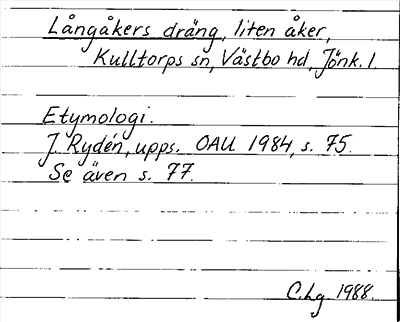 Långåkers dräng, liten åker,
Kulltorps sn, Västbo hd, Jönk. l.
Etymologi.
J. Rydén, upps. OAU 1984, s. 75.
Se även s. 77.
C.Lg. 1988.